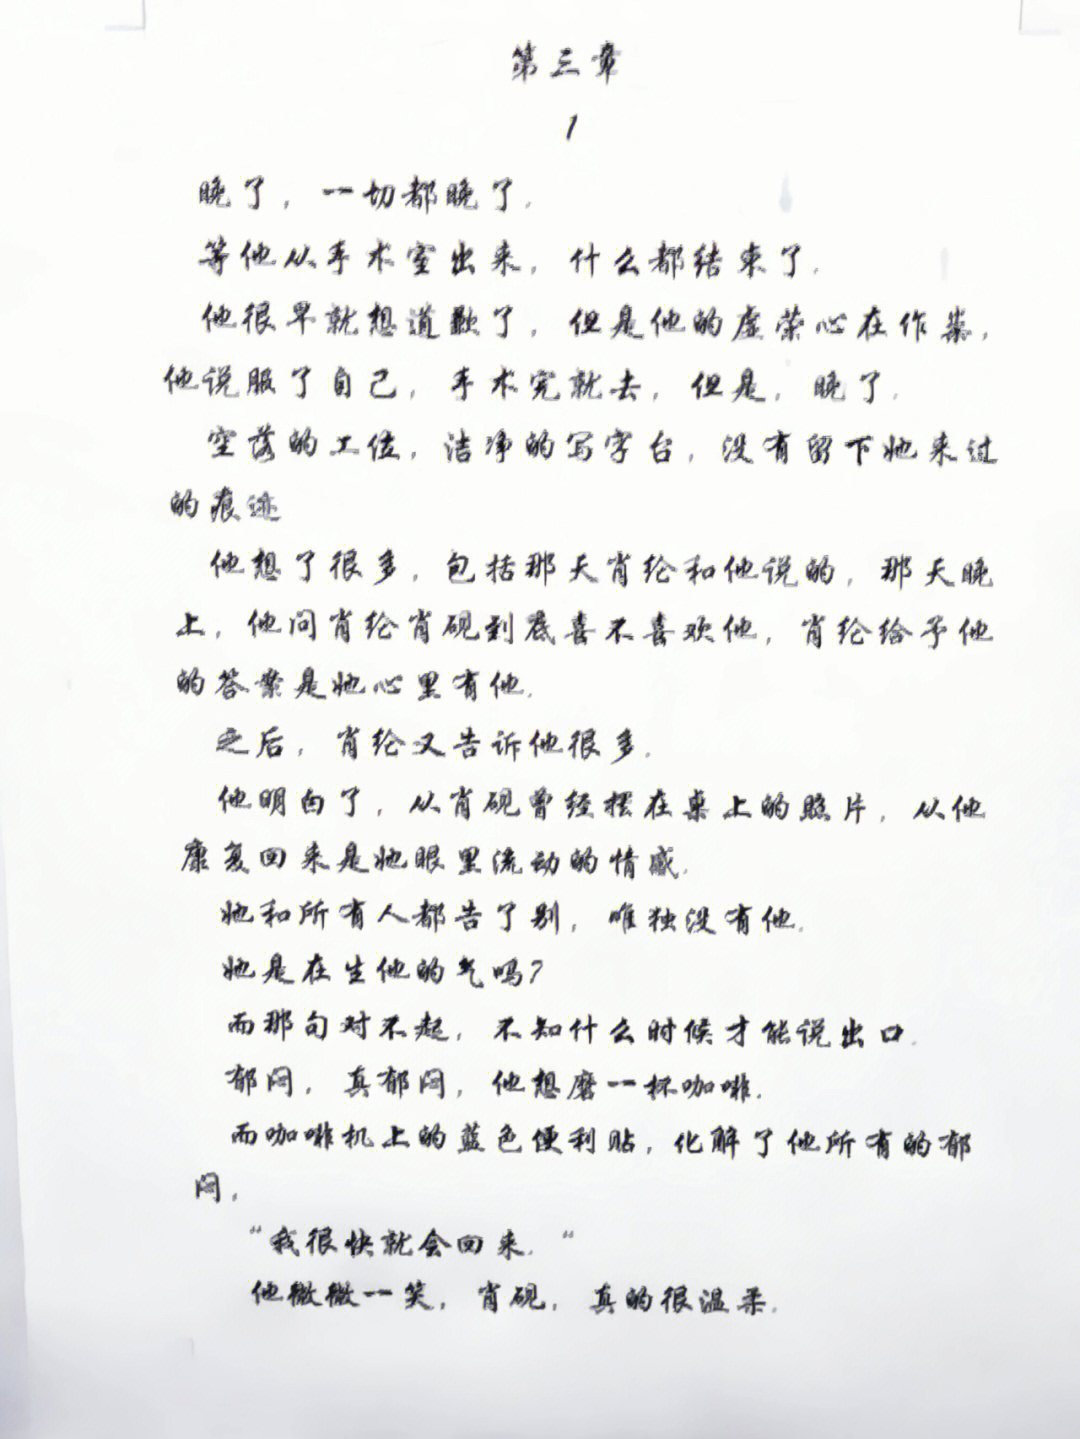 第三章
1
晚了，一切都晚了.
等他从手术室出来，什么都结束了.
他很早就想道歉了，但是他的虚荣心在作祟，
他说服了自己，手术完就去，但是，晚了.
空落的工位，洁净的写字台，没有留下她来过
的痕迹
他想了很多，包括那天肖纶和他说的，那天晚
上，他问肖纶肖砚到底喜不喜欢他，肖纶给予他
的答案是她心里有他.
之后，肖纶又告诉他很多.
他明白了，从肖砚曾经摆在桌上的照片，从他
康复回来是她眼里流动的情感.
她和所有人都告了别，唯独没有他.
她是在生他的气吗？
而那句对不起，不知什么时候才能说出口.
郁闷，真郁闷，他想磨一杯咖啡.
而咖啡机上的蓝色便利贴，化解了他所有的郁
闷，
“我很快就会回来.“
他微微一笑，肖砚，真的很温柔.